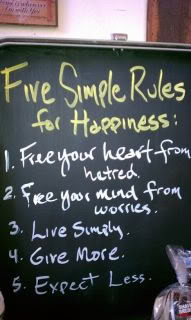 Five Simple Rules
for Happiness:
1. Free your heart from
hatred.
2. Free your mind from
worries.
3. Live Simply.
4. Give More.
5. Expect Less.